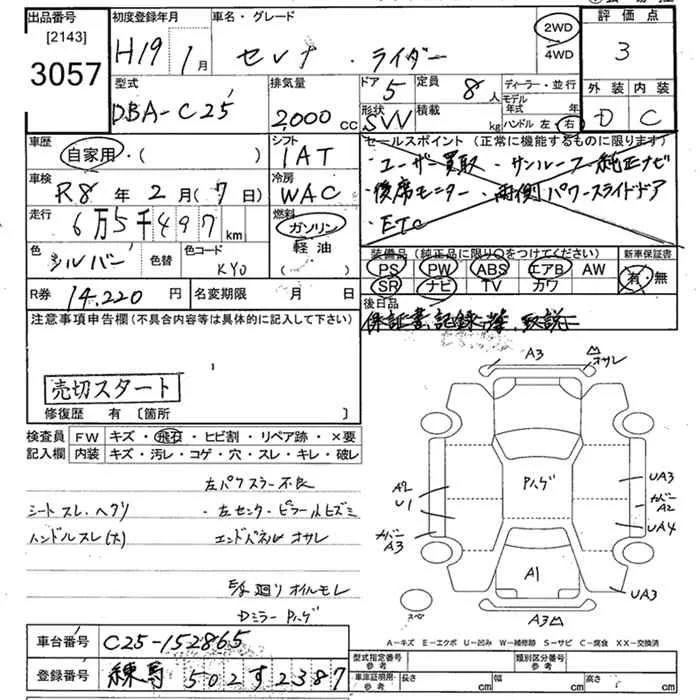 出品番号 初度登録年月 車名・グレード 2WD 評価点
[2143]
3057 H19 1月 セレナ・ライダー 4WD 3
型式 排気量 ドア 5 定員 8人 ディーラー・並行 外装 内装
DBA-C25 2,000cc 形状 SW 積載 kg モデル年式 年 D C
ハンドル 左・右
車歴 自家用・( ) シフト IAT セールスポイント(正常に機能するものに限ります)
車検 R8年2月(7日) 冷房 WAC ・ユーザー買取・サンルーフ・純正ナビ
・後席モニター・両側パワースライドドア
走行 6万5千497km 燃料 ガソリン ・ETC
軽油
( )
色 シルバー 色替 色コード KY0 装備品(純正品に限り○をつけてください) 新車保証書
PS PW ABS エアB AW 有・無
R券 14,220円 名変期限 月 日 SR ナビ TV カワ
後日品
注意事項申告欄(不具合内容等は具体的に記入して下さい) 保証書、記録簿、取説
売切スタート
修復歴 有 〔箇所 〕
検査員 FW キズ・飛石・ヒビ割・リペア跡・×要
記入欄 内装 キズ・汚レ・コゲ・穴・スレ・キレ・破レ
左パワスラー不良
シートスレ、ヘタリ ・左センターピラー小ヒズミ
ハンドルスレ(大) エンドパネルオサレ
廻りオイルモレ
Dミラー Pハゲ
A3 オサレ
Pハゲ
A2 UA3
U1 カバーA2
カバーA3 UA4
A1 UA3
スペ
A3
A-キズ E-エクボ U-凹み W-補修跡 S-サビ C-腐食 XX-交換済
車台番号 C25-152865 型式指定番号 参考 類別区分番号 参考
登録番号 練馬 502す2387 車庫証明用・参考 長さ cm 幅 cm 高さ cm